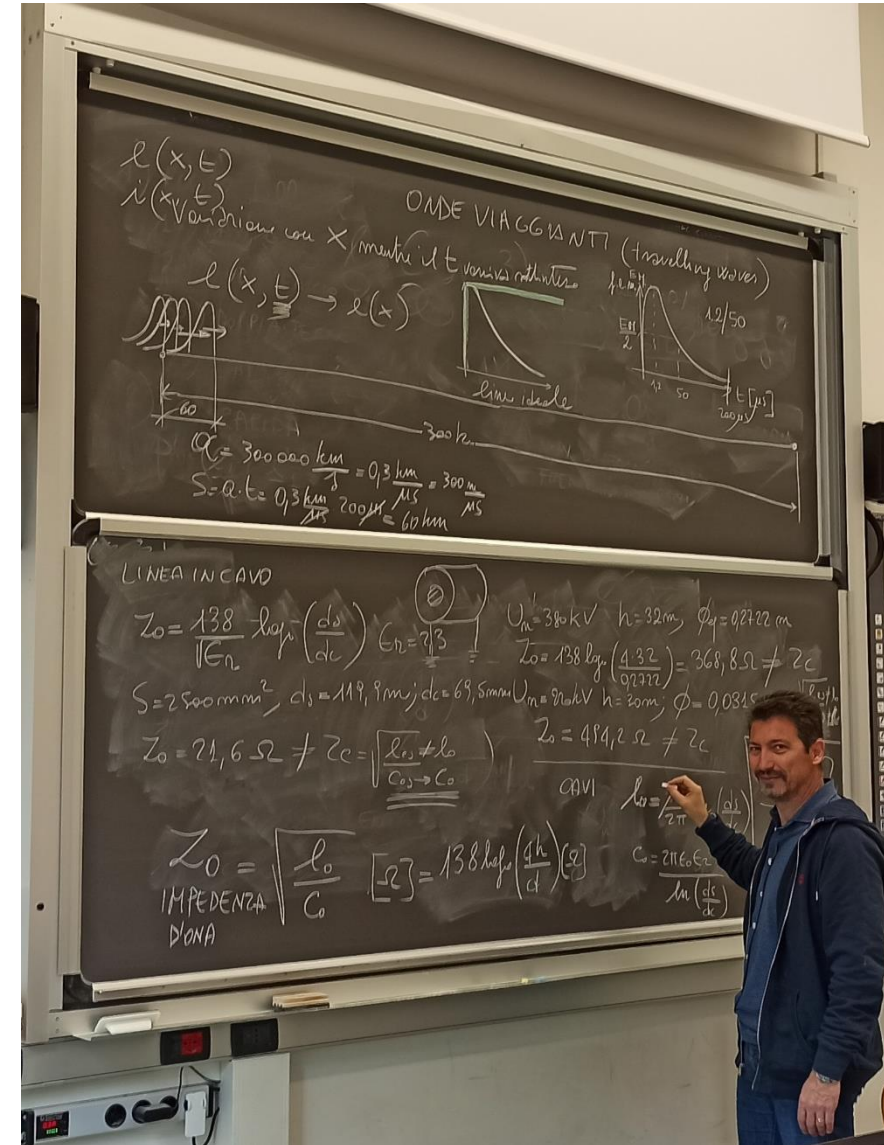 e(x,t)
i(x,t)
ONDE VIAGGIANTI (travelling waves)
con X, mentre il t
e(x,t) → e(x)
EM
EM/2
1,2/50
1,2 50
t [μs]
200 μs
linea ideale
60
300k
a = 300000 km/s = 0,3 km/μs = 300 m/μs
S = a·t = 0,3 km/μs 200 μs = 60 km
LINEA IN CAVO
Zo = 138/√εr log10 (ds/dc) εr = 2,3
S = 2500 mm², ds = 119,9 mm; dc = 69,5 mm
Zo = 21,6 Ω ≠ Zc = √(ℓes ≠ ℓo / Cos → Co)
Um = 380 kV h = 32 m, ϕeq = 0,2722 m
Zo = 138 log10 (4·32/0,2722) = 368,8 Ω ≠ Zc
Um = 220 kV h = 30 m; ϕ = 0,0315
Zo = 494,2 Ω ≠ Zc
CAVI
ℓo = /2π (ds/
Co = 2πεoεr / ln (ds/dc)
Zo = √(ℓo/Co) [Ω] = 138 log10 (4h/d) [Ω]
IMPEDENZA
D'ONA